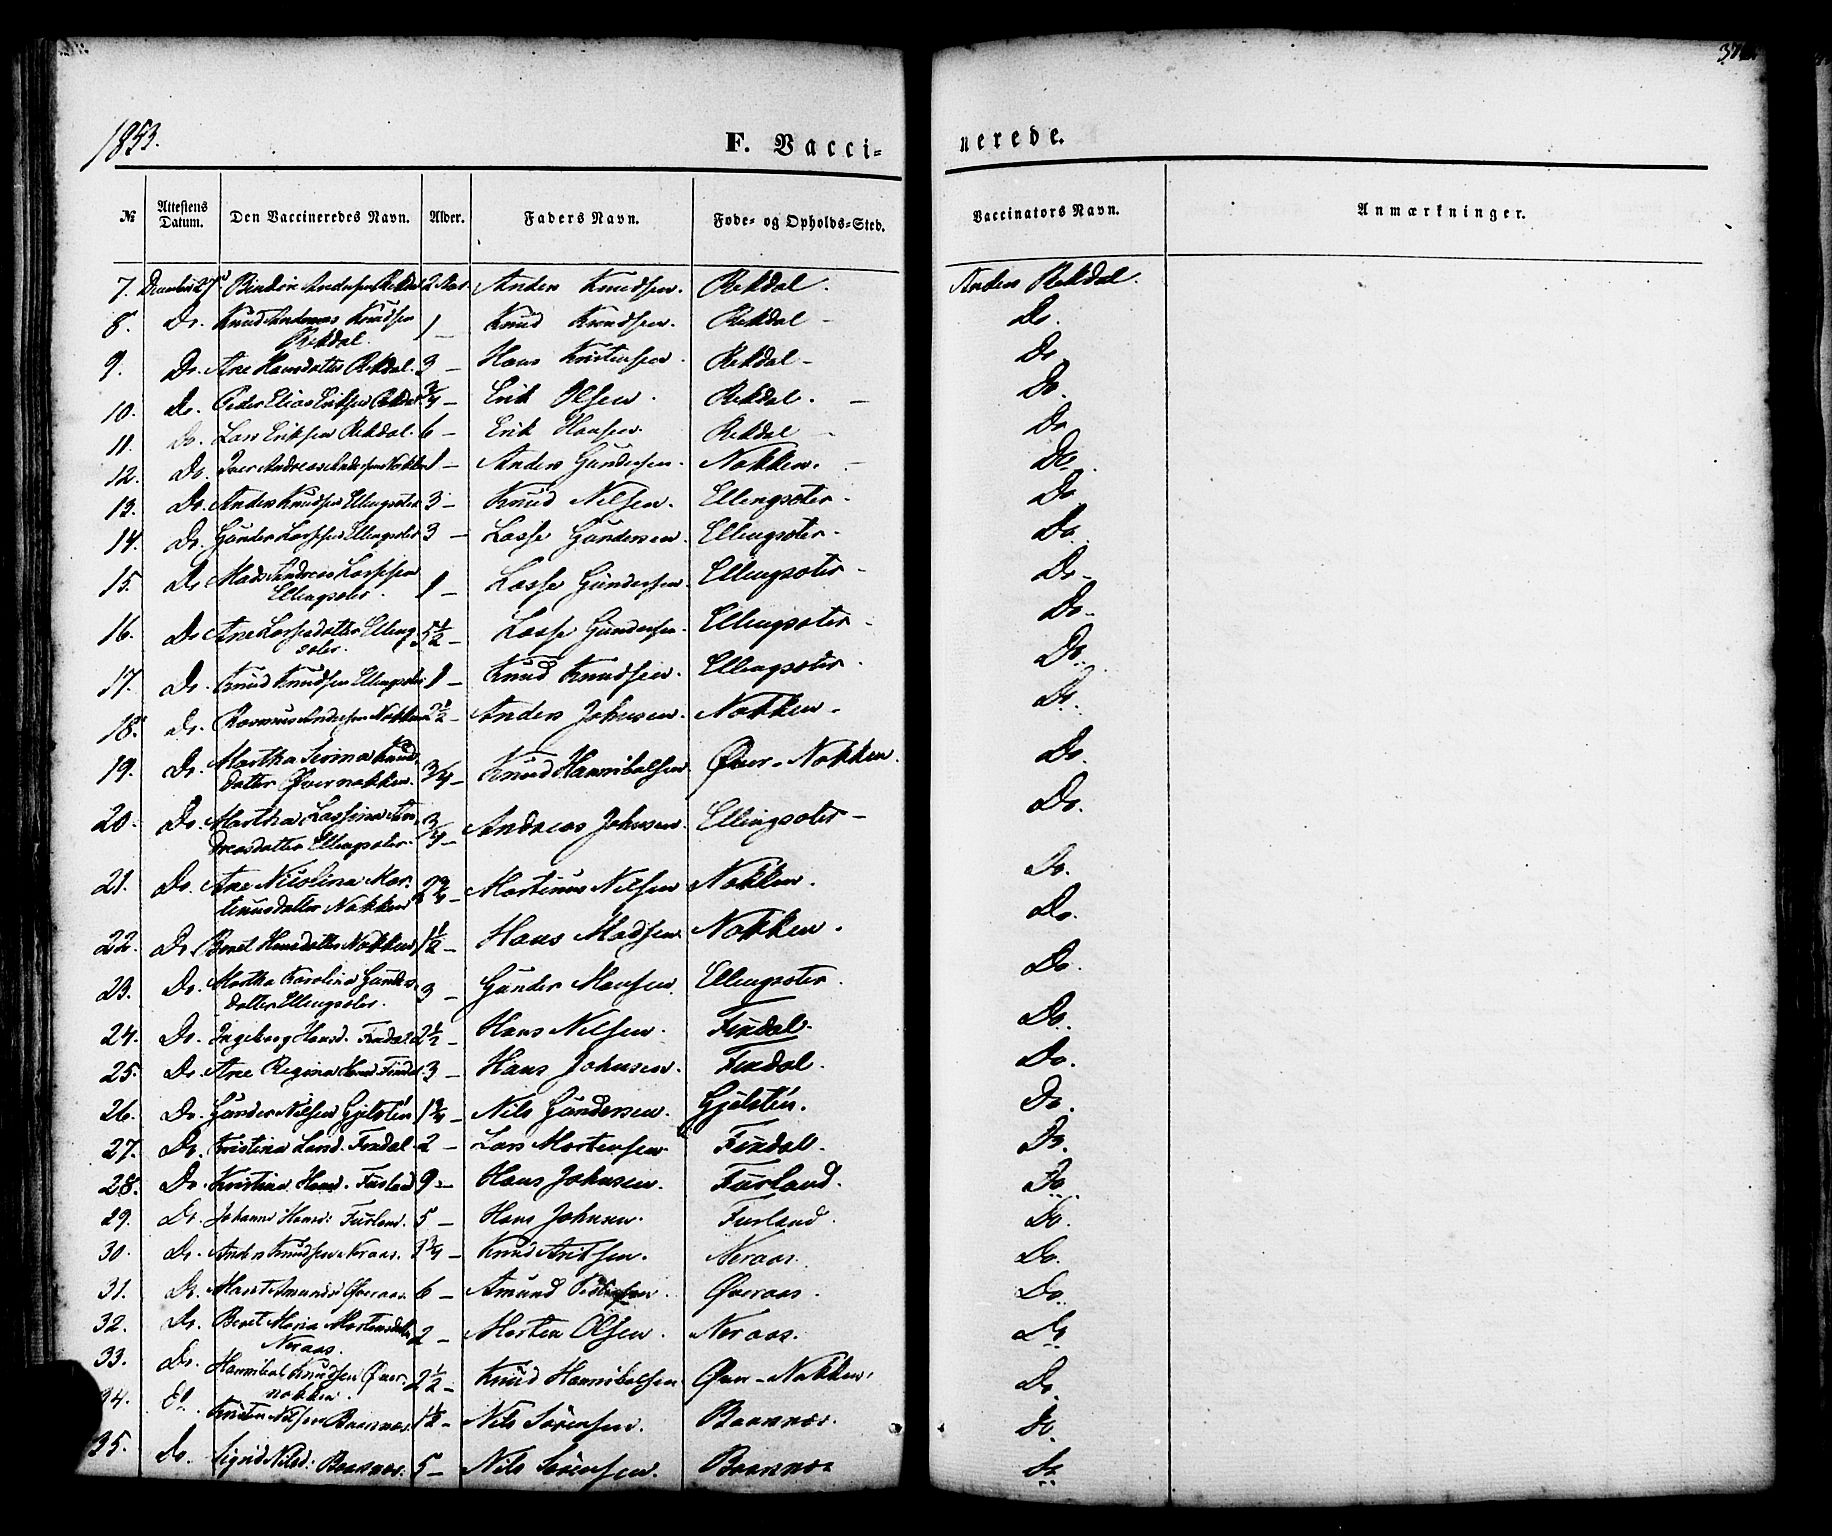 1853.
F. Vacci-
nerede.
№ Attestens Datum. Den Vaccineredes Navn. Alder. Faders Navn. Føde- og Opholds-Sted. Vaccinators Navn. Anmærkninger.
7. Andersen Rekdal 2 Aar. Anders Knudsen. Rekdal. Anders Rekdal.
8. Do. Knud Andreas Knudsen 1 – Knud Knudsen. Rekdal – Do.
Rekdal.
9. Do. Ane Hansdatter Rekdal. 3 – Hans Kristensen Rekdal – Do.
10. Do. Peder Elias Eriksen Rekdal 3/4 – Erik Olsen. Rekdal. – Do.
11. Do. Lars Eriksen Rekdal. 6 – Erik Hansen. Rekdal – Do.
12. Do. Iver Andreas Andersen Nakken 1 – Anders Gundersen. Nakken. – Do.
13. Do. Anders Knudsen Ellingsæter 3 – Knud Nilsen. Ellingsæter. Do.
14. Do. Gunder Lassesen Ellingsæter 3 – Lasse Gundersen. Ellingsæter. Do.
15. Do. Mads Andreas Lassesen 1 – Lasse Gundersen. Ellingsæter – Do.
Ellingsæter.
16. Do. Ane Lassedatter Elling- 5 1/2 – Lasse Gundersen. Ellingsæter – Do.
sæter.
17. Do. Knud Knudsen Ellingsæter 1 – Knud Knudsen. Ellingsæter. Do.
18. Do. Rasmus Andersen Nakken 2 1/2 – Anders Johnsen. Nakken. Do.
19. Do. Martha Serina Knuds- 3/4 – Knud Hannibalsen Øver-Nakken. Do.
datter Øvernakken.
20. Do. Martha Lassina An- 3/4 – Andreas Johnsen. Ellingsæter – Do.
dreasdatter Ellingsæter.
21. Do. Ane Nicolina Mar- Martinus Nilsen Nakken. Do.
tinusdatter Nakken
22. Do. Beret Hansdatter Nakken 1 1/2 – Hans Madsen. Nakken. Do.
23. Do. Martha Karolina Gunders- 3 – Gunder Hansen. Ellingsæter. Do.
datter Ellingsæter.
24. Do. Ingeborg Hansd. Findal 2 1/2 – Hans Nilsen. Findal. Do.
25. Do. Ane Regina Hansd. Findal. 3 – Hans Johnsen. Findal. Do.
26. Do. Gunder Nilsen Gjelsten 1 3/4 – Nils Gundersen. Gjelsten. Do.
27. Do. Kristina Larsd. Findal 2 – Lars Mortensen. Findal. Do.
28. Do. Kristina Hansd. Furland 9 – Hans Johnsen. Furland. Do.
29. Do. Johanne Hansd. Furland. 5 – Hans Johnsen. Furland. Do.
30. Do. Anders Knudsen Neraas. Knud Eriksen. Neraas. Do.
31. Do. Marit Amundsd. Øveraas. 6 – Amund Øveraas. Do.
32. Do. Beret Maria Mortensdatter 2 – Morten Olsen. Neraas. Do.
Neraas.
33. Do. Hannibal Knudsen Øver- 2 1/2 – Knud Hannibalsen Øver-Nakken. Do.
nakken.
34. Kristen Nilsen Baasnæs. 1 1/2 – Nils Sørensen. Baasnæs. Do.
35. Do. Sigrid Nilsd. Baasnæs. 5 – Nils Sørensen. Baasnæs Do.